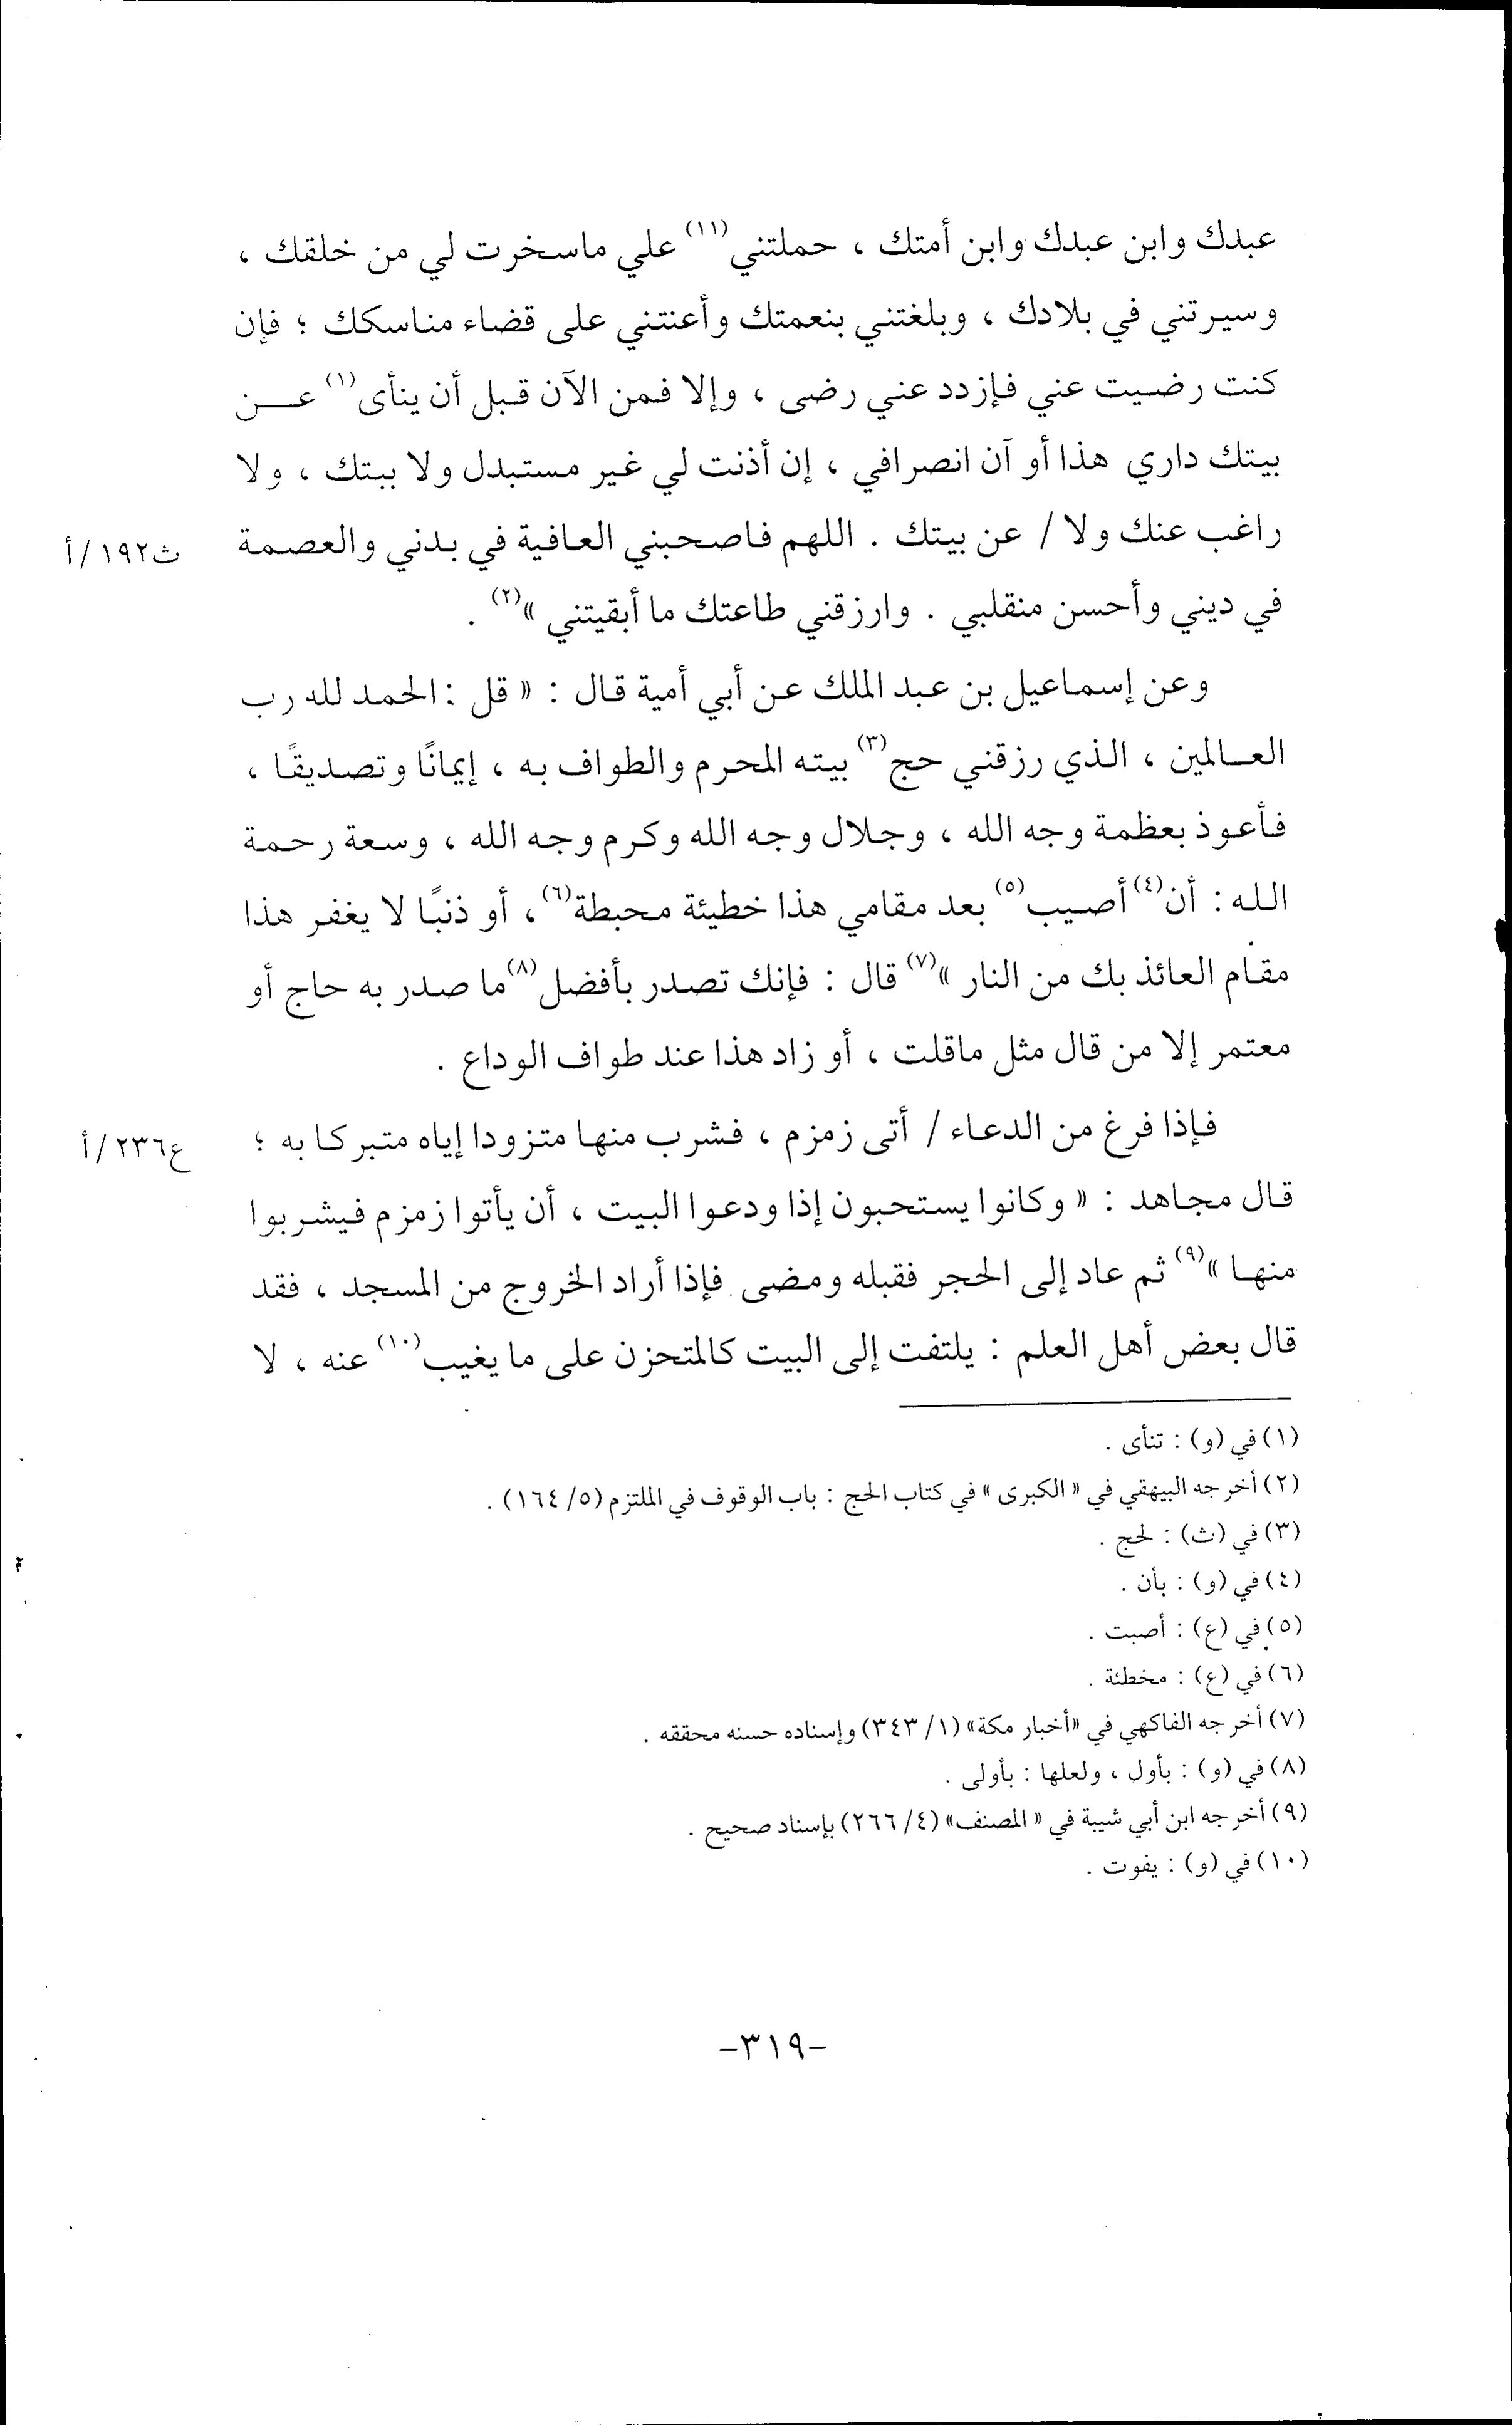 عبدك وابن عبدك وابن أمتك ، حملتني(١١) علي ماسخرت لي من خلقك ،
وسيرتني في بلادك ، وبلغتني بنعمتك وأعنتني على قضاء مناسكك ؛ فإن
كنت رضيت عني فإزدد عني رضى ، وإلا فمن الآن قبل أن ينأى(١) عن
بيتك داري هذا أو آن انصرافي ، إن أذنت لي غير مستبدل ولا ببتك ، ولا
راغب عنك ولا / عن بيتك . اللهم فاصحبني العافية في بدني والعصمة
ث١٩٢/أ
في ديني وأحسن منقلبي . وارزقني طاعتك ما أبقيتني »(٢) .
وعن إسماعيل بن عبد الملك عن أبي أمية قال : « قل : الحمد لله رب
العالمين ، الذي رزقني حج(٣) بيته المحرم والطواف به ، إيمانًا وتصديقًا ،
فأعوذ بعظمة وجه الله ، وجلال وجه الله وكرم وجه الله ، وسعة رحمة
الله : أن(٤) أصيب(٥) بعد مقامي هذا خطيئة محبطة(٦) ، أو ذنبًا لا يغفر هذا
مقام العائذ بك من النار »(٧) قال : فإنك تصدر بأفضل(٨) ما صدر به حاج أو
معتمر إلا من قال مثل ماقلت ، أو زاد هذا عند طواف الوداع .
فإذا فرغ من الدعاء / أتى زمزم ، فشرب منها متزودا إياه متبركا به ؛
ع٢٣٦/أ
قال مجاهد : « وكانوا يستحبون إذا ودعوا البيت ، أن يأتوا زمزم فيشربوا
منها »(٩) ثم عاد إلى الحجر فقبله ومضى فإذا أراد الخروج من المسجد ، فقد
قال بعض أهل العلم : يلتفت إلى البيت كالمتحزن على ما يغيب(١٠) عنه ، لا
(١) في (و) : تنأى .
(٢) أخرجه البيهقي في « الكبرى » في كتاب الحج : باب الوقوف في الملتزم (٥/ ١٦٤) .
(٣) في (ث) : لحج .
(٤) في (و) : بأن .
(٥) في (ع) : أصبت .
(٦) في (ع) : مخطئة .
(٧) أخرجه الفاكهي في «أخبار مكة» (١/ ٣٤٣) وإسناده حسنه محققه .
(٨) في (و) : بأول ، ولعلها : بأولى .
(٩) أخرجه ابن أبي شيبة في « المصنف» (٤/ ٢٦٦) بإسناد صحيح .
(١٠) في (و) : يفوت .
-٣١٩-